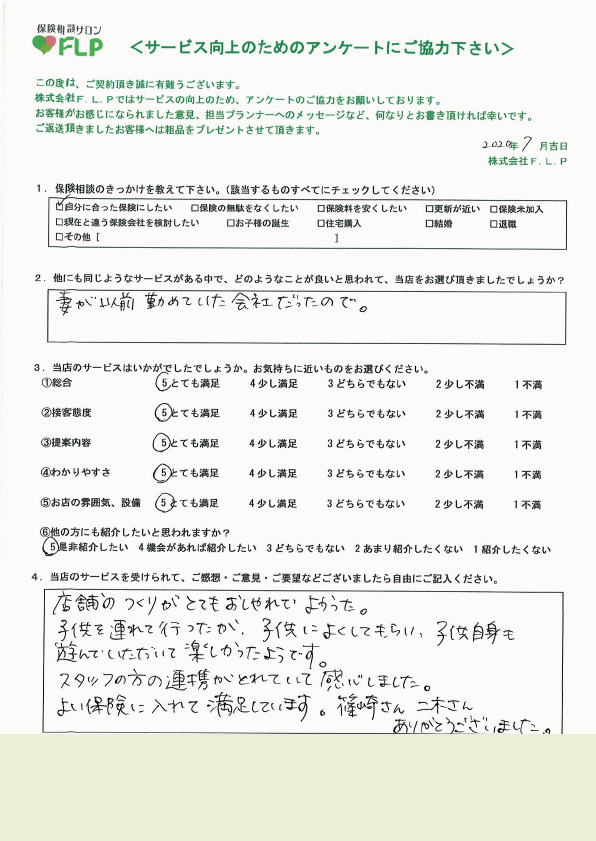 保険相談サロン
FLP
＜サービス向上のためのアンケートにご協力下さい＞
この度は、ご契約頂き誠に有難うございます。
株式会社F.L.Pではサービスの向上のため、アンケートのご協力をお願いしております。
お客様がお感じになられました意見、担当プランナーへのメッセージなど、何なりとお書き頂ければ幸いです。
ご返送頂きましたお客様へは粗品をプレゼントさせて頂きます。
2020年 7 月吉日
株式会社F.L.P
1．保険相談のきっかけを教えて下さい。（該当するものすべてにチェックしてください）
☑自分に合った保険にしたい □保険の無駄をなくしたい □保険料を安くしたい □更新が近い □保険未加入
□現在と違う保険会社を検討したい □お子様の誕生 □住宅購入 □結婚 □退職
□その他［ ］
2．他にも同じようなサービスがある中で、どのようなことが良いと思われて、当店をお選び頂きましたでしょうか？
妻が以前 勤めていた会社だったので。
3．当店のサービスはいかがでしたでしょうか。お気持ちに近いものをお選びください。
①総合 5とても満足 4少し満足 3どちらでもない 2少し不満 1不満
②接客態度 5とても満足 4少し満足 3どちらでもない 2少し不満 1不満
③提案内容 5とても満足 4少し満足 3どちらでもない 2少し不満 1不満
④わかりやすさ 5とても満足 4少し満足 3どちらでもない 2少し不満 1不満
⑤お店の雰囲気、設備 5とても満足 4少し満足 3どちらでもない 2少し不満 1不満
⑥他の方にも紹介したいと思われますか？
5是非紹介したい 4機会があれば紹介したい 3どちらでもない 2あまり紹介したくない 1紹介したくない
4．当店のサービスを受けられて、ご感想・ご意見・ご要望などございましたら自由にご記入ください。
店舗のつくりがとてもおしゃれでよかった。
子供を連れて行ったが、子供によくしてもらい、子供自身も
遊んでいただいて楽しかったようです。
スタッフの方の連携がとれていて感心しました。
よい保険に入れて満足しています。篠崎さん 二木さん
ありがとうございました。